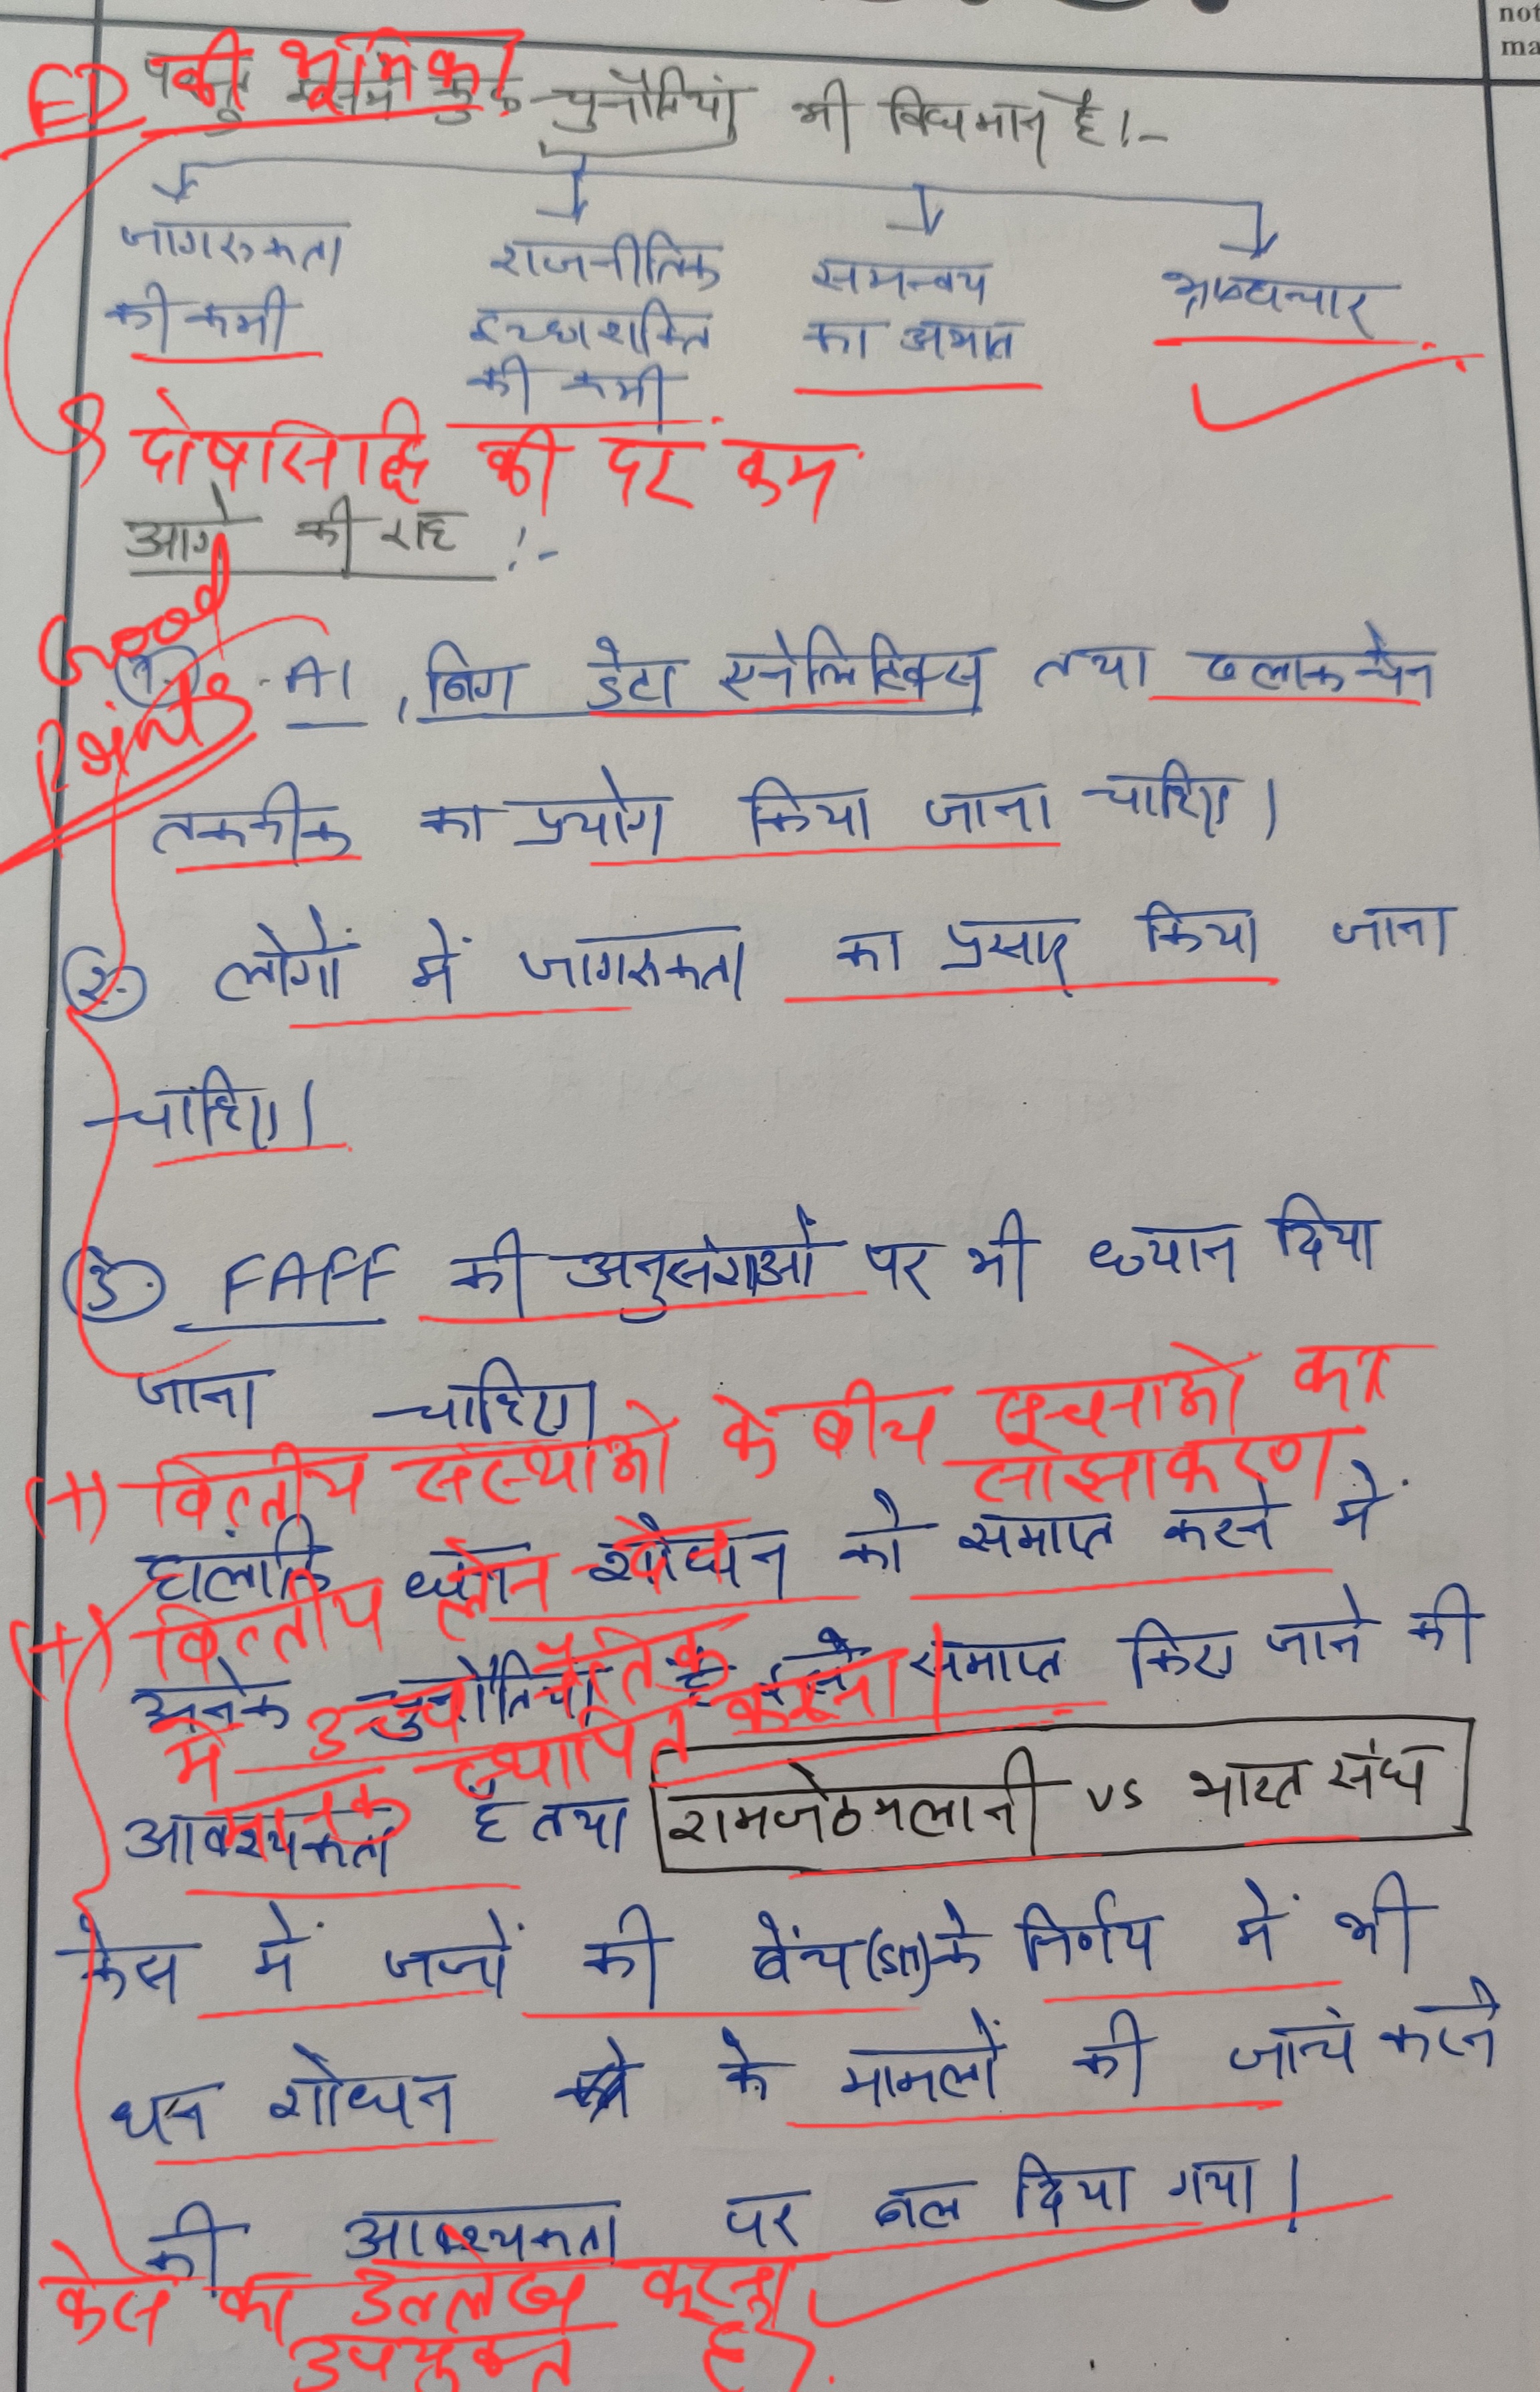 not
ma
ED की भूमिका
चुनौतियां भी विधमान है।-
जागरुकता राजनीतिक समन्वय भ्रष्टाचार
की कमी इच्छाशक्ति का अभाव
की कमी
दोषसिद्धि की दर कम
आगे की राह :-
Good
Points
1. AI, बिग डेटा एनेलिटिक्स तथा ब्लाकचेन
तकनीक का प्रयोग किया जाना चाहिए।
2. लोगों में जागरुकता का प्रसार किया जाना
चाहिए।
3. FATF की अनुसंशाओं पर भी ध्यान दिया
जाना चाहिए।
(+) वित्तीय संस्थाओं के बीच सूचनाओं का
साझाकरण
हालांकि धन शोधन को समाप्त करने में
(+) वित्तीय क्षेत्र
अनेक चुनौतियां है समाप्त किए जाने की
में उच्च नैतिक
मानक स्थापित करना।
आवश्यकता है तथा रामजेठमलानी vs भारत संघ
केस में जजों की बेंच के निर्णय में भी
धन शोधन के मामलों की जांच करने
की आवश्यकता पर बल दिया गया।
केस का उल्लेख करना
उपयुक्त है।